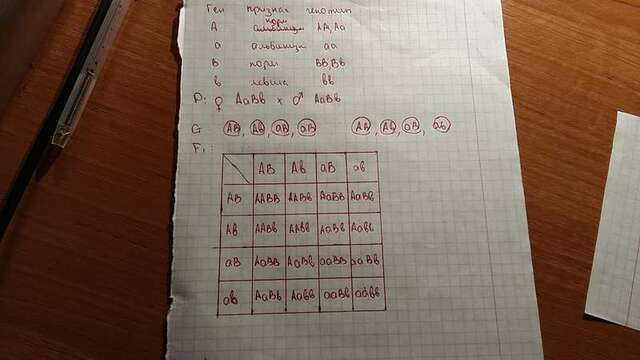 Ген признак генотип
норм
А альбинизм АА, Аа
а альбиниз аа
В норм ВВ, Вв
в левша вв
P: ♀ АаВв × ♂ АаВв
G АВ, Ав, аВ, аВ АВ, Ав, аВ, ав
F₁:
АВ Ав аВ ав
АВ ААВВ ААВв АаВВ АаВв
Ав ААВв ААвв АаВв Аавв
аВ АаВВ АаВв ааВВ ааВв
ав АаВв Аавв ааВв аавв